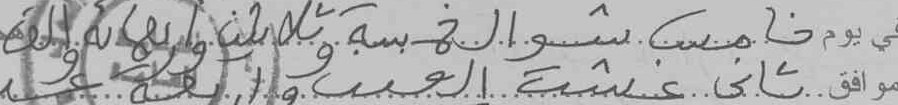 في يوم خامس شوال خمسة وثلاثين واربعمائة والف
موافق ثاني غشت الفين واربعة عشر